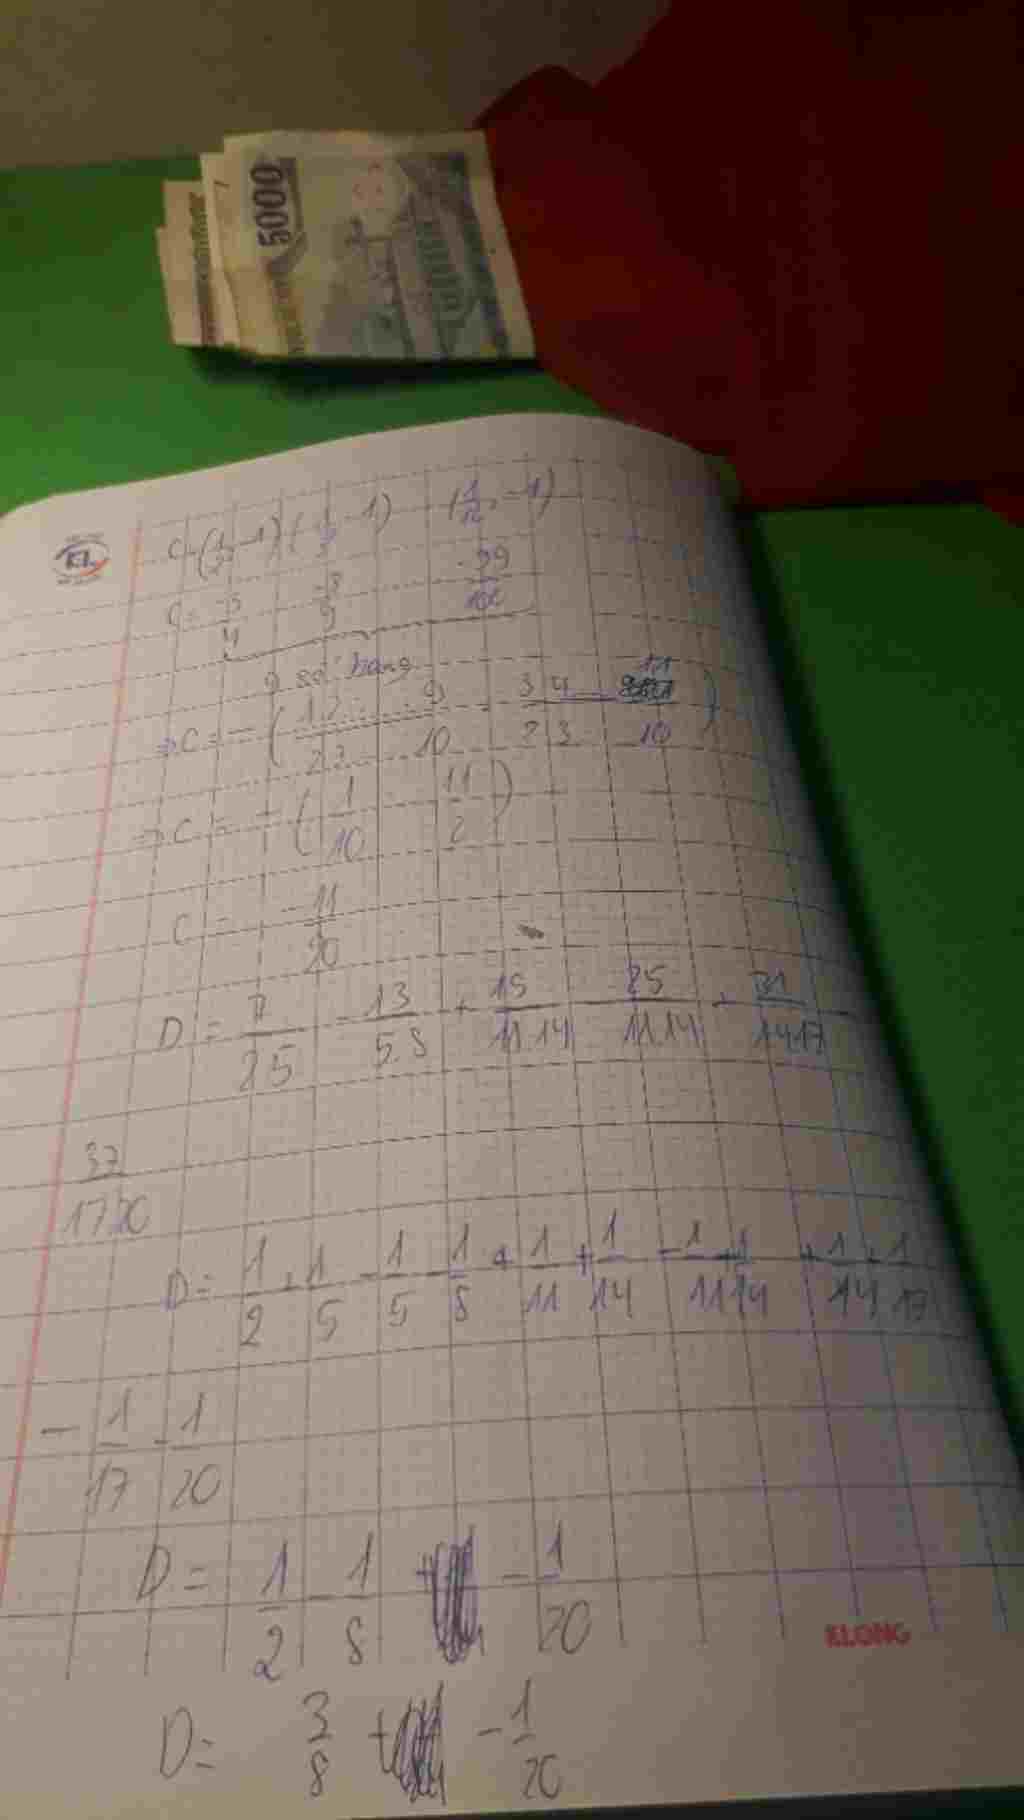 5000
KL
C = (1/2² - 1) (1/3² - 1) ... (1/10² - 1)
C = -3/4 . -8/9 ... -99/100
9 số hạng
=> C = - (1.2.....9 / 2.3...10 . 3.4...11 / 2.3...10)
=> C = - (1/10 . 11/2)
C = -11/20
D = 7/2.5 - 13/5.8 + 15/11.14 - 25/11.14 + 31/14.17 -
37/17.20
D = 1/2 + 1/5 - 1/5 - 1/8 + 1/11 + 1/14 - 1/11 + 1/14 + 1/14 + 1/17
- 1/17 - 1/20
D = 1/2 - 1/8 - 1/20
KLONG
D = 3/8 + - 1/20